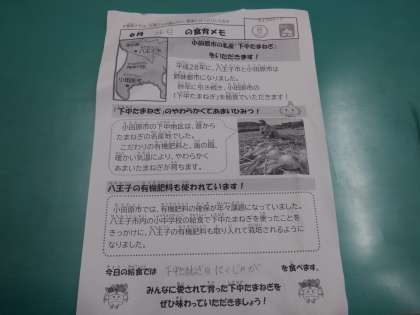 ６月
の食育メモ
小田原市の名産「下中たまねぎ」
をいただきます！
平成２８年に、八王子市と小田原市は
姉妹都市になりました。
昨年に引き続き、小田原市の
「下中たまねぎ」を給食でいただきます！
「下中たまねぎ」のやわらかくてあまいひみつ！
小田原市の下中地区は、昔から
たまねぎの名産地でした。
こだわりの有機肥料と、海の風、
暖かい気温により、やわらかく
あまいたまねぎが育ちます。
八王子の有機肥料も使われています！
小田原市では、有機肥料の確保が年々課題になっていました。
八王子市内の小中学校の給食で下中たまねぎを使ったことを
きっかけに、八王子の有機肥料も取り入れて栽培されるように
なりました。
今日の給食では 下中たまねぎのにくじゃが を食べます。
みんなに愛されて育った下中たまねぎを
ぜひ味わっていただきましょう！